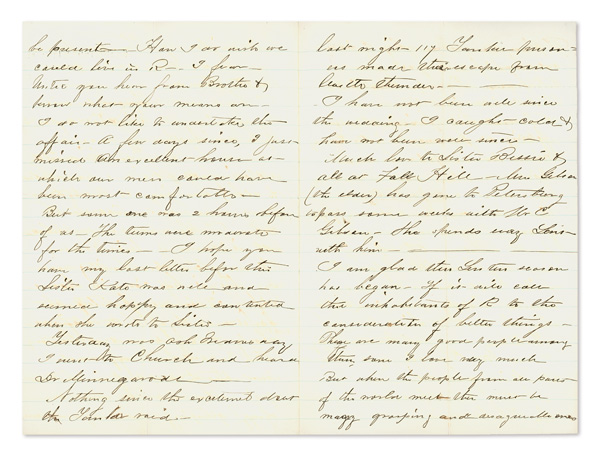 be present — How I do wish we
could live in R — I fear
Until you hear from Brother &
know what your means are —
I do not like to undertake the
affair — A few days since, I just
missed an excellent house — as
which our men could have
been most comfortable —
But some one was 2 hours before
of us — The terms were moderate
for the times — I hope you
have my last letter before this
Sister Kate was well and
seemed happy and contented
when she wrote to Sister —
Yesterday was Ash Wednesday
I went to Church and heard
Dr Minnegerode —
Nothing since the excitement about
the Yankee raid —
last night 119 Yankee prison=
ers made their escape from
Castle thunder —
I have not been well since
the wedding — I caught cold &
have not been well since —
Much love to Sister Bessie &
all at Fall Hill — Mrs Gibson
(the elder) has gone to Petersburg
to pass some weeks with Mr C
Gibson — She spends way Lent
with him —
I am glad this Lenten season
has began — It is well call
the inhabitants of R to the
consideration of better things —
There are many good people among
them, some I love very much
But when the people from all parts
of the world meet there must be
many grasping and disagreeable ones